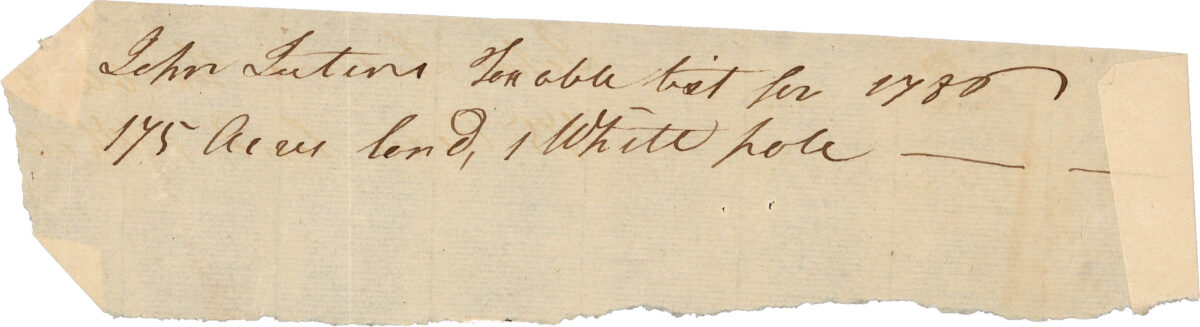 John Luten's Taxable list for 1786
175 Acres land, 1 White pole